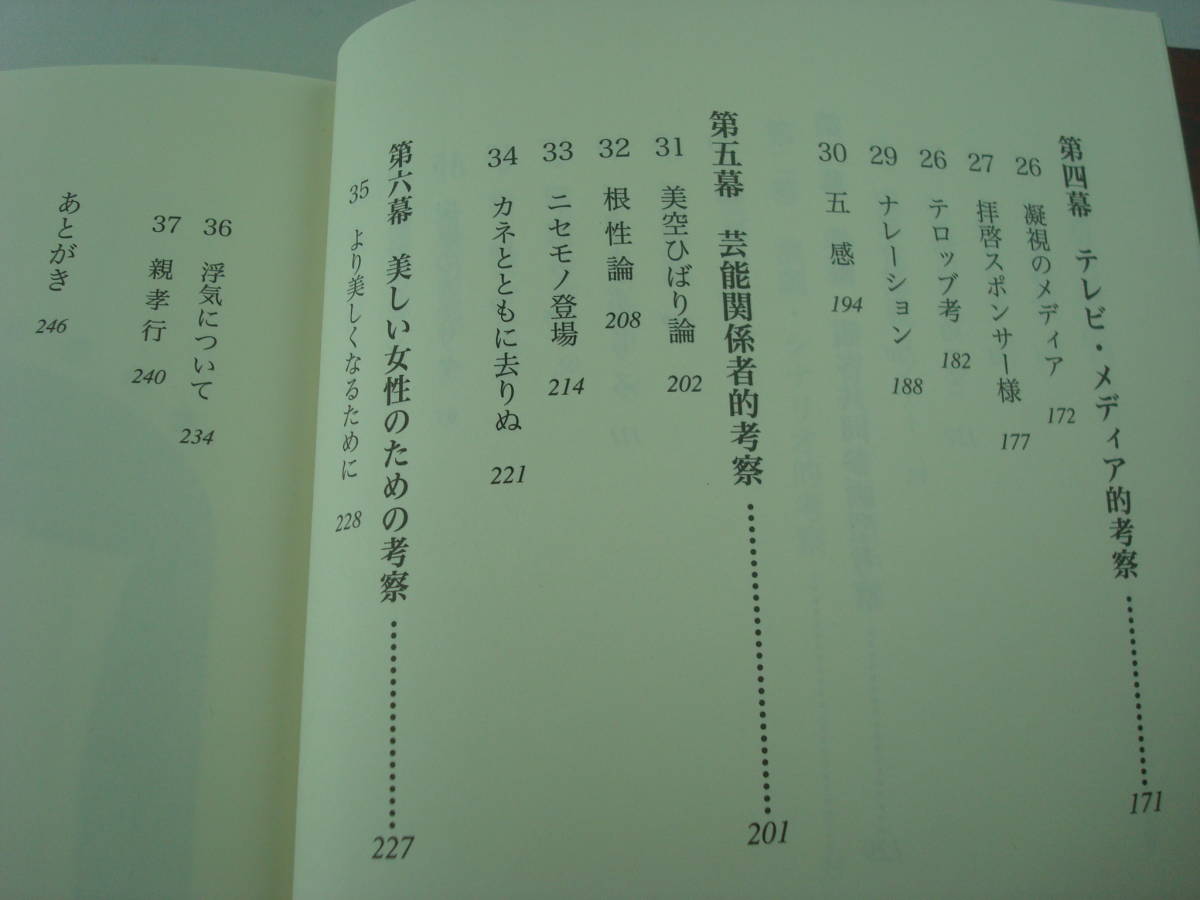 第四幕 テレビ・メディア的考察……………………171
26 凝視のメディア 172
27 拝啓スポンサー様 177
26 テロップ考 182
29 ナレーション 188
30 五感 194
第五幕 芸能関係者的考察……………………201
31 美空ひばり論 202
32 根性論 208
33 ニセモノ登場 214
34 カネとともに去りぬ 221
第六幕 美しい女性のための考察……………………227
35 より美しくなるために 228
36 浮気について 234
37 親孝行 240
あとがき 246